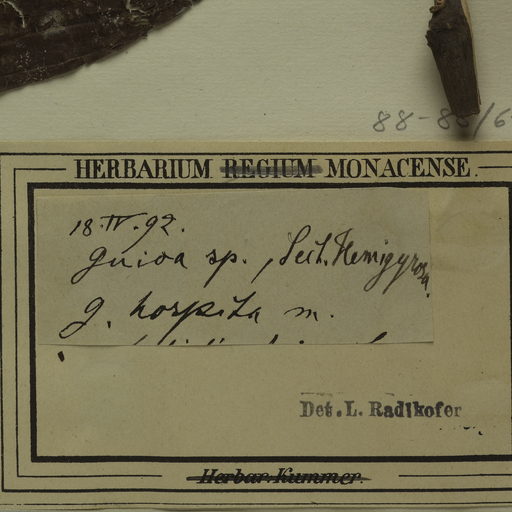 88-88/6
HERBARIUM REGIUM MONACENSE.
18.IV.92.
Guioa sp., Sect. Hemigyrosa.
G. hospita m.
Det. L. Radlkofer
Herbar. Kummer.